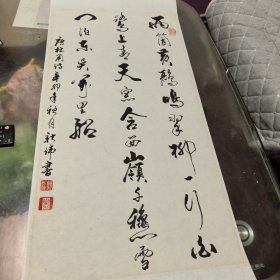 两箇黄鹂鸣翠柳一行白
鹭上青天窗含西岭千秋雪
门泊东吴万里船
唐杜甫诗辛卯年秋月 书